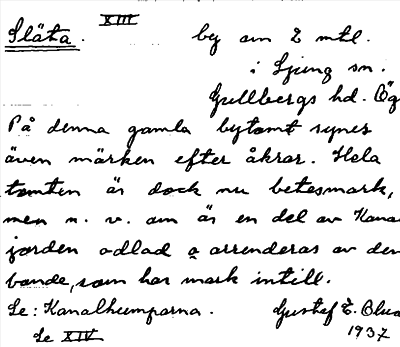 XIII
Släta. by om 2 mtl.
i Ljung sn.
Gullbergs hd. Ög
På denna gamla bytomt synes
även märken efter åkrar. Hela
tomten är dock nu betesmark,
men n. v. om är en del av Kanal
jorden odlad o arrenderas av den
bonde, som har mark intill.
Se: Kanalhumparna. Gustaf E.
Se XIV 1937